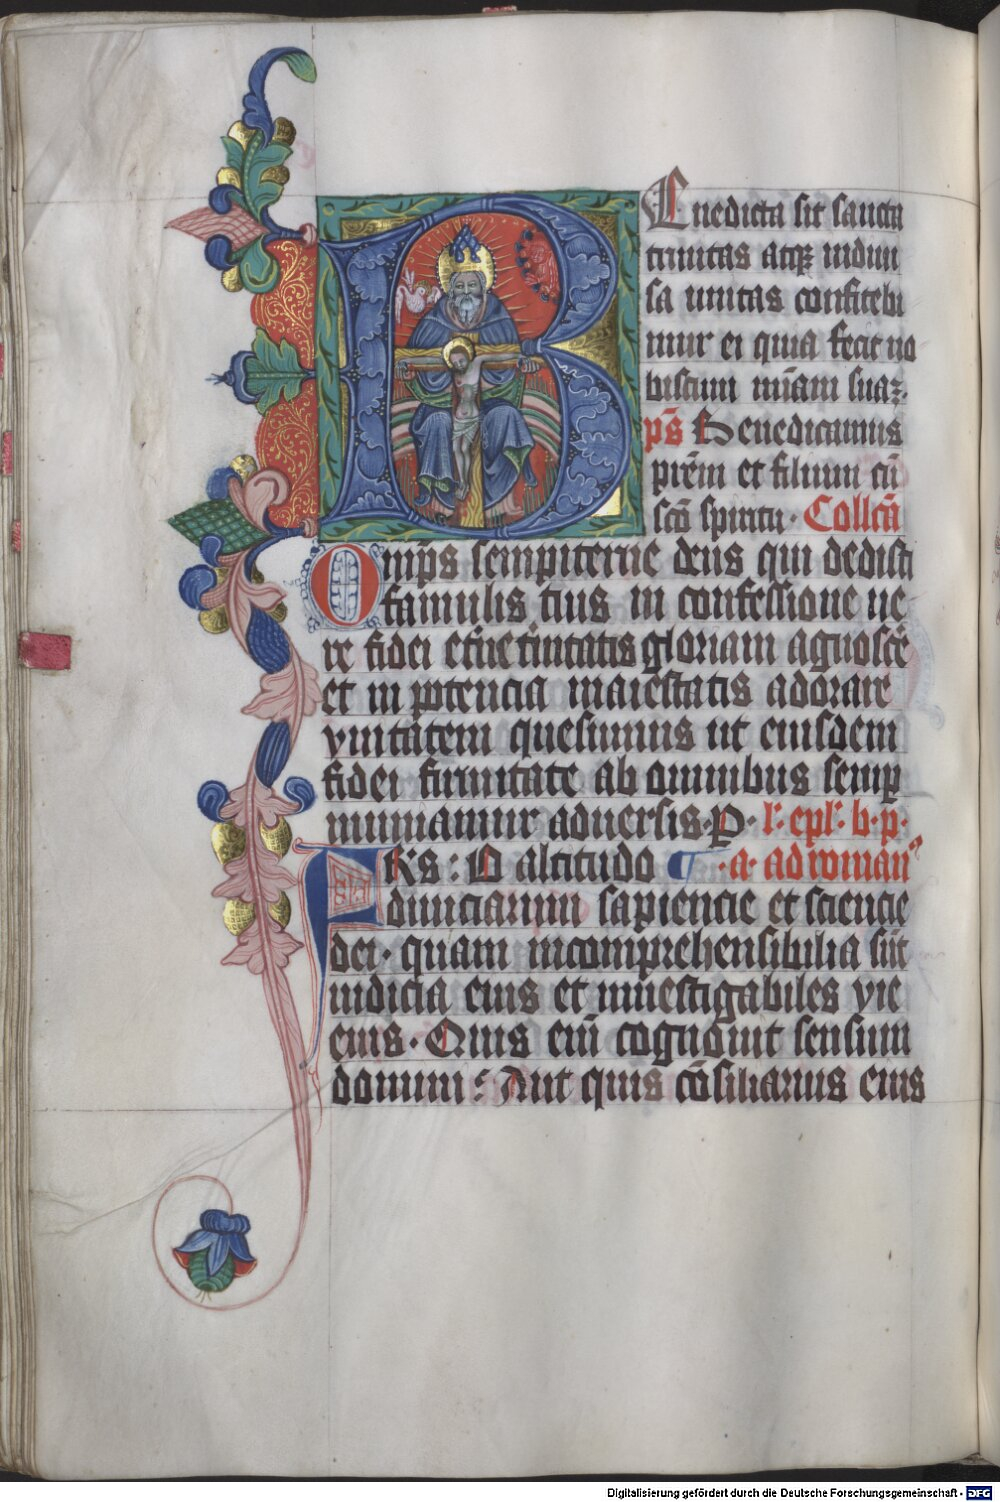 Enedicta sit sancta
trinitas atqꝫ indiui
sa unitas confitebi
mur ei quia fecit no
biscum mīam suaꝫ.
pš Benedicamus
prēm et filium cū
scō spiritu. Collcā
Omps sempiterne deus qui dedisti
famulis tuis in confessione ue
re fidei etūe tīnitatis gloriam agnoscē
et in potencia maiestatis adorare
vnitatem quesumus ut eiusdem
fidei firmitate ab omnibus semꝑ
muniamur aduersis. P. l. epl. b. p.
ks: O altitudo a. ad roman
diuiciarum sapiencie et sciencie
dei. quam incomprehensibilia sūt
iudicia eius et inuestigabiles vie
eius. Quis enī cognouit sensum
domini? Aut quis cōsiliarius eius
Digitalisierung gefördert durch die Deutsche Forschungsgemeinschaft - DFG